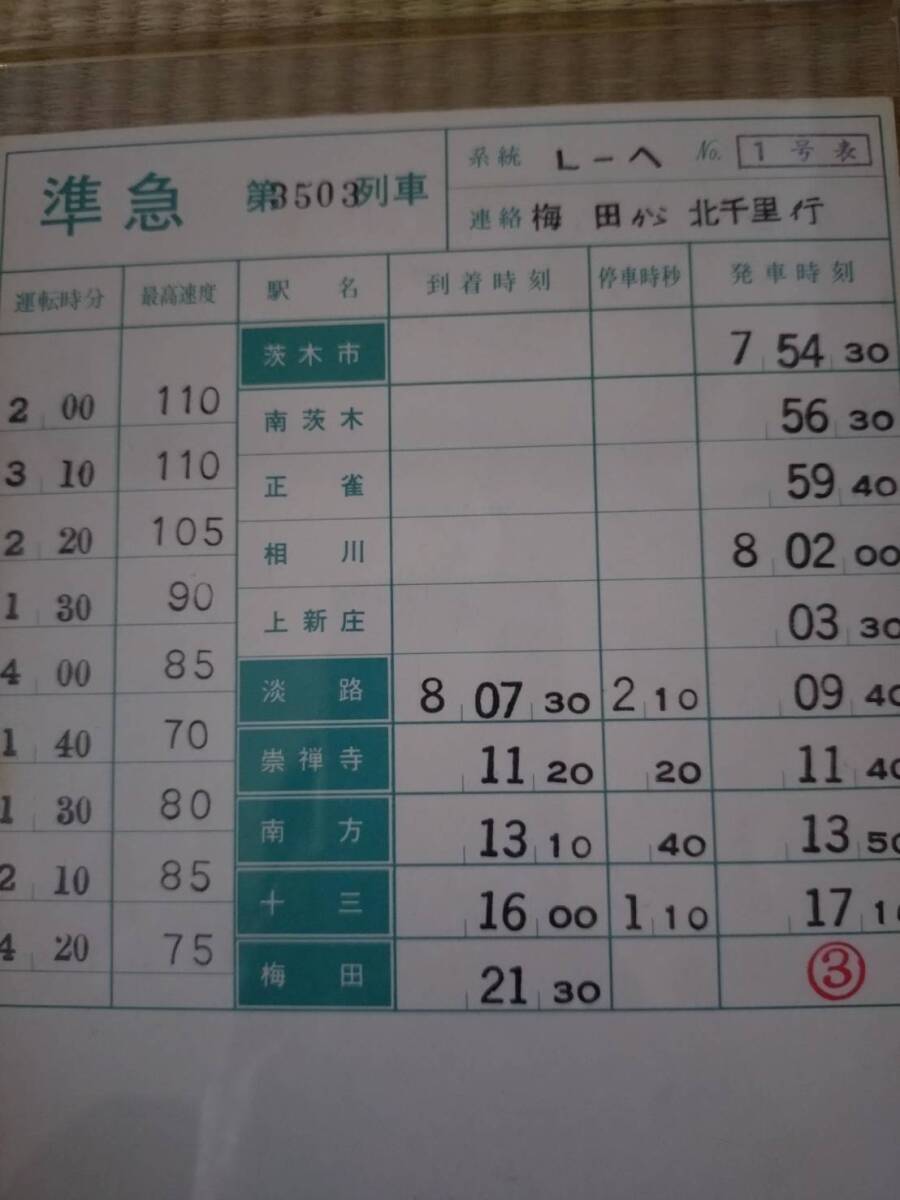 準急 第3503列車
系統 L-ヘ No. 1号表
連絡 梅田から 北千里行
運転時分 最高速度 駅名 到着時刻 停車時秒 発車時刻
茨木市 7 54 30
2 00 110
南茨木 56 30
3 10 110
正雀 59 40
2 20 105
相川 8 02 00
1 30 90
上新庄 03 30
4 00 85
淡路 8 07 30 2 10 09 40
1 40 70
崇禅寺 11 20 20 11 40
1 30 80
南方 13 10 40 13 50
2 10 85
十三 16 00 1 10 17 10
4 20 75
梅田 21 30 ③